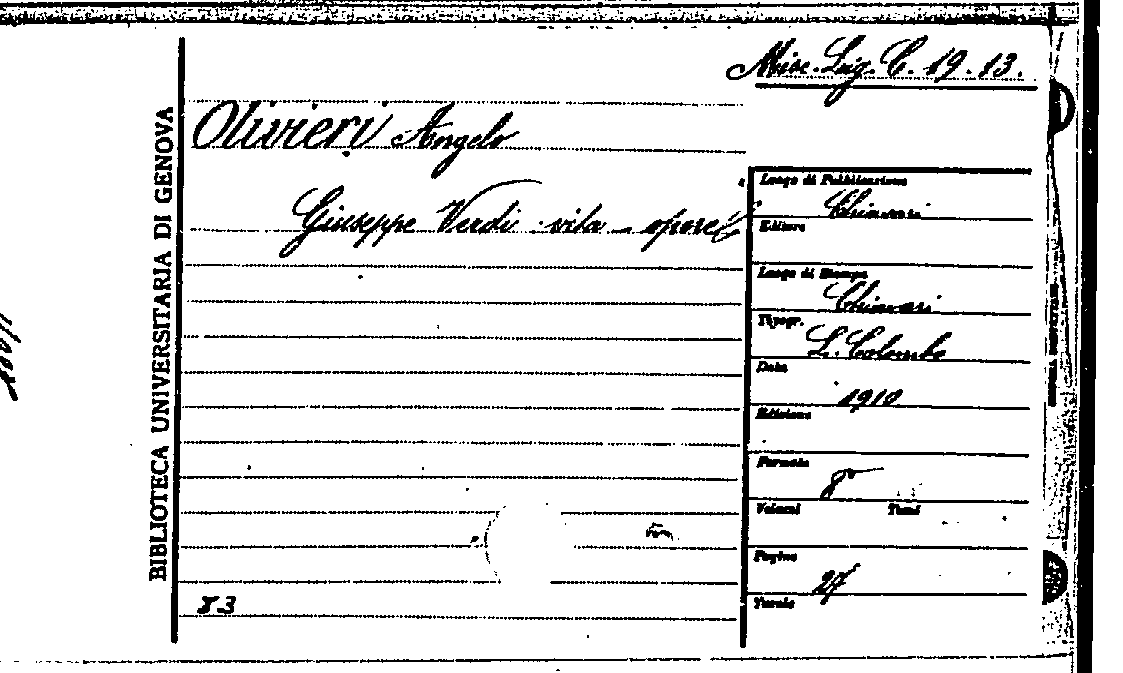 Misc. Lig. C. 19.13.
BIBLIOTECA UNIVERSITARIA DI GENOVA
Olivieri Angelo
Giuseppe Verdi - vita - opere
Luogo di Pubblicazione
Chiavari
Editore
Luogo di Stampa
Chiavari
Tipogr.
L. Colombo
Data
1910
Edizione
Formato
8°
Volumi Tomi
Pagine
27
Tavole
83